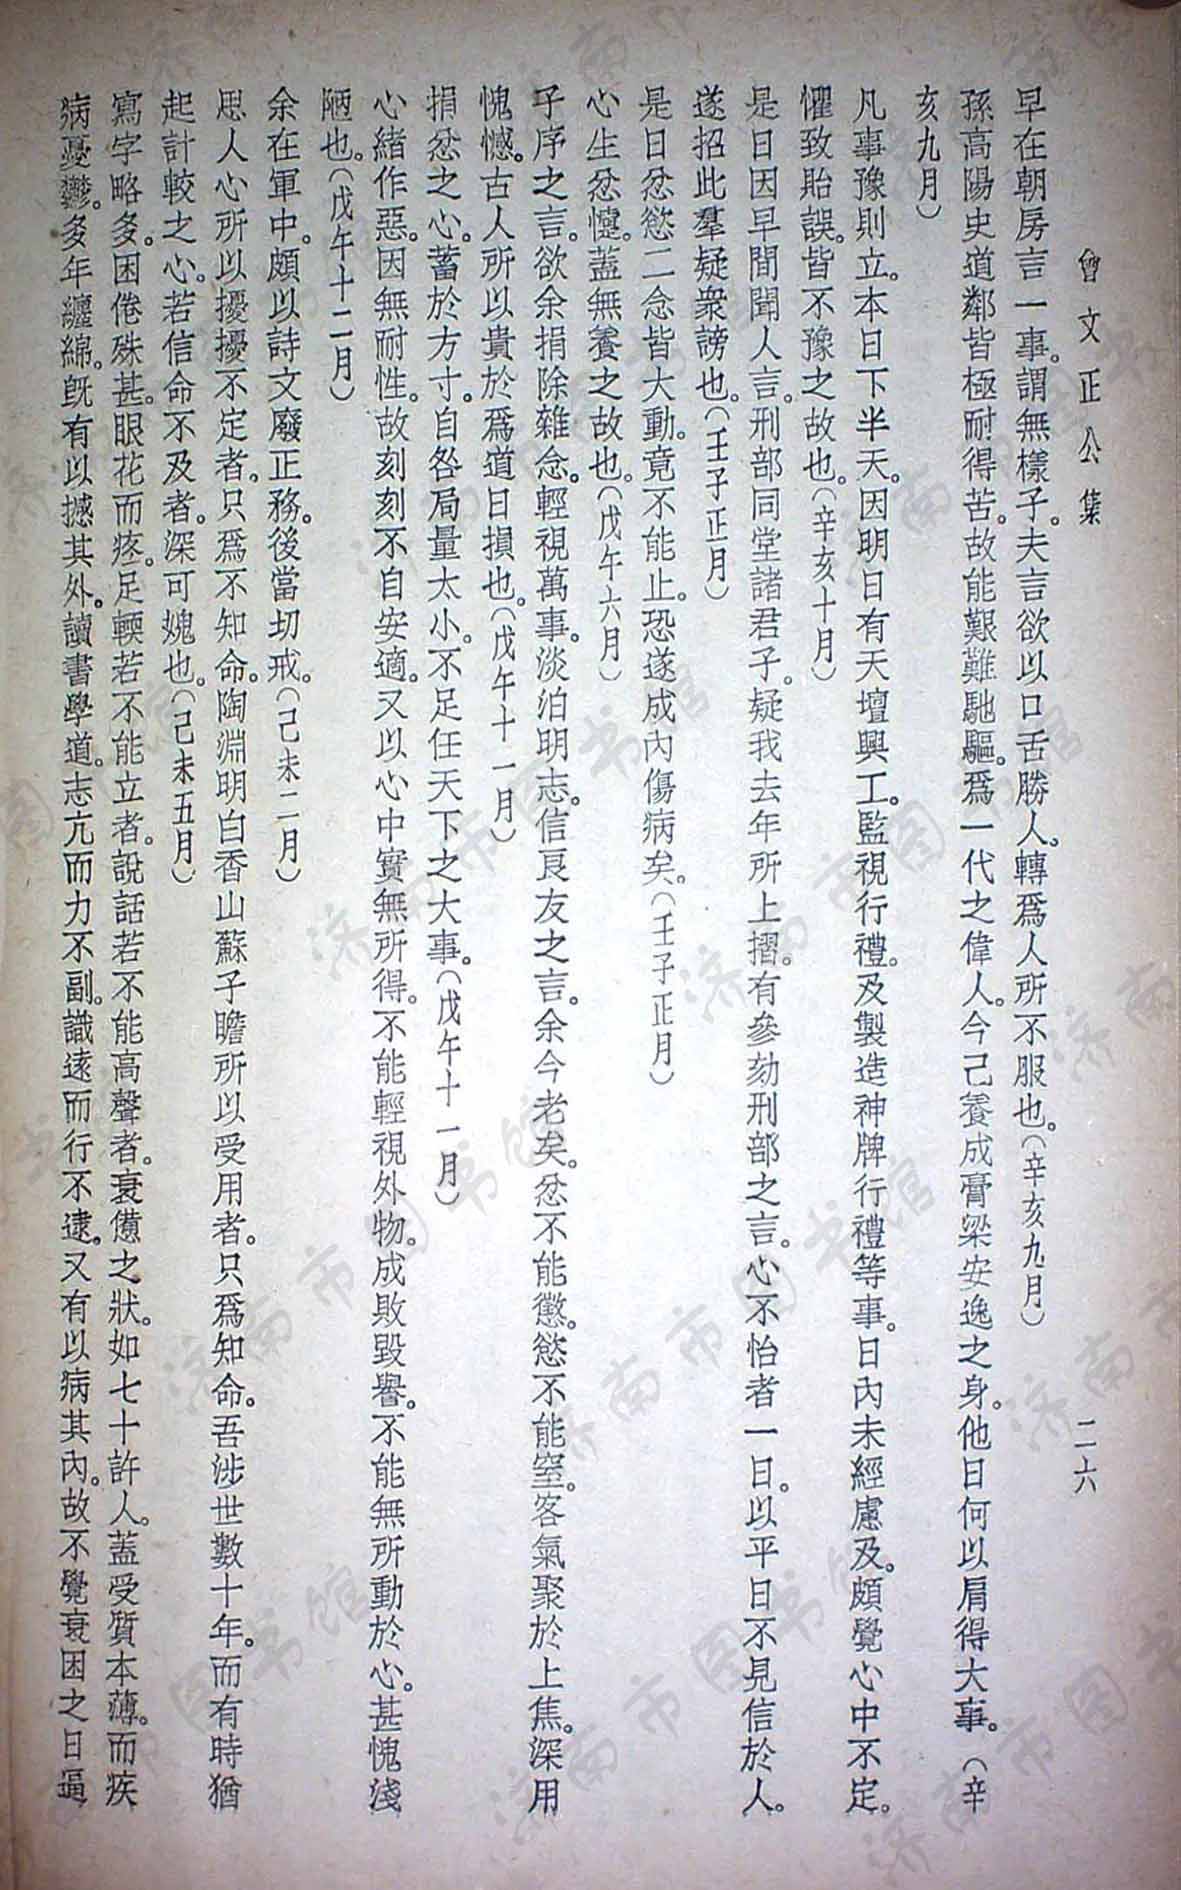 曾文正公集
二六
早在朝房言一事。謂無樣子。夫言欲以口舌勝人。轉爲人所不服也。（辛亥九月）
孫高陽史道鄰皆極耐得苦。故能艱難馳驅。爲一代之偉人。今己養成膏梁安逸之身。他日何以肩得大事。（辛
亥九月）
凡事豫則立。本日下半天。因明日有天壇興工。監視行禮。及製造神牌行禮等事。日內未經慮及。頗覺心中不定。
懼致貽誤。皆不豫之故也。（辛亥十月）
是日因早間聞人言。刑部同堂諸君子。疑我去年所上摺。有參劾刑部之言。心不怡者一日。以平日不見信於人。
遂招此羣疑衆謗也。（壬子正月）
是日忿慾二念皆大動。竟不能止。恐遂成內傷病矣。（壬子正月）
心生忿懥。蓋無養之故也。（戊午六月）
子序之言。欲余捐除雜念。輕視萬事。淡泊明志。信良友之言。余今老矣。忿不能懲。慾不能窒。客氣聚於上焦。深用
愧憾。古人所以貴於爲道日損也。（戊午十一月）
捐忿之心。蓄於方寸。自咎局量太小。不足任天下之大事。（戊午十一月）
心緒作惡。因無耐性。故刻刻不自安適。又以心中實無所得。不能輕視外物。成敗毀譽。不能無所動於心。甚愧淺
陋也。（戊午十二月）
余在軍中。頗以詩文廢正務。後當切戒。（己未二月）
思人心所以擾擾不定者。只爲不知命。陶淵明白香山蘇子瞻所以受用者。只爲知命。吾涉世數十年。而有時猶
起計較之心。若信命不及者。深可媿也。（己未五月）
寫字略多。困倦殊甚。眼花而疼。足輭若不能立者。說話若不能高聲者。衰憊之狀。如七十許人。蓋受質本薄。而疾
病憂鬱。多年纏綿。旣有以撼其外。讀書學道。志亢而力不副。識遠而行不逮。又有以病其內。故不覺衰困之日逼
济南市图书馆